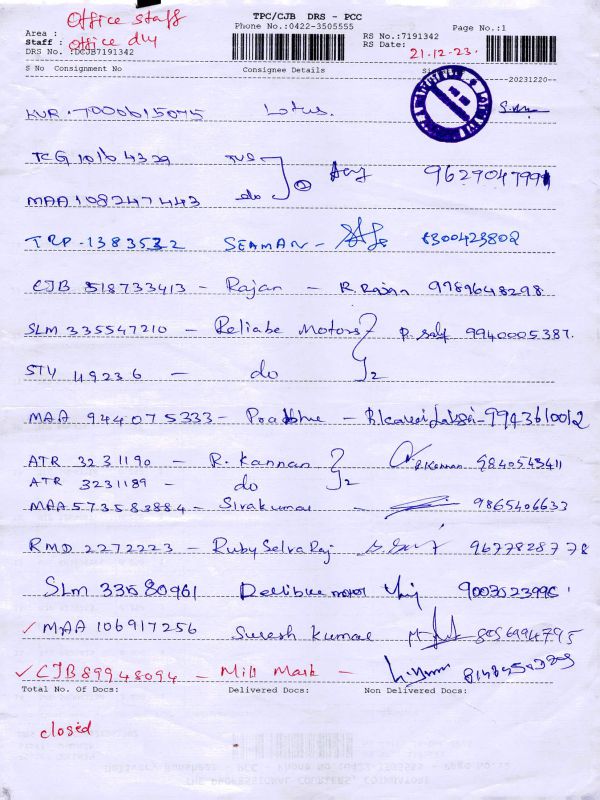 Office staff
TPC/CJB DRS - PCC
Phone No.:0422-3505555
Page No.:1
Area :
Staff : office dly
DRS No. :DCJB7191342
RS No.:7191342
RS Date: 21-12-23.
S No Consignment No Consignee Details
20231220
KUR. T000615075 Lotus.
TCG 10164329 TVS
② 9629047991
MAA 108247443 do
TRP - 1383532 SEAMAN - 8300423802
CJB 518733413 - Rajan - R Rajan 9789648298
SLM 335547210 - Reliabe Motors 9940005387.
STV 49236 - do 2
MAA 944075333 - Prabhu - 9943610012
ATR 3231190 - R. Kannan R. Kannan 9840543411
ATR 3231189 - do 2
MAA 573583884 - Sivakumar - 9865406633
RMD 2272223 - Ruby Selva Raj 9677828778
SLM 33580961 motor 9003523996
✓ MAA 106917256 Suresh Kumar
✓ CJB 89948094 - Mill Mark -
Total No. Of Docs: Delivered Docs: Non Delivered Docs:
closed